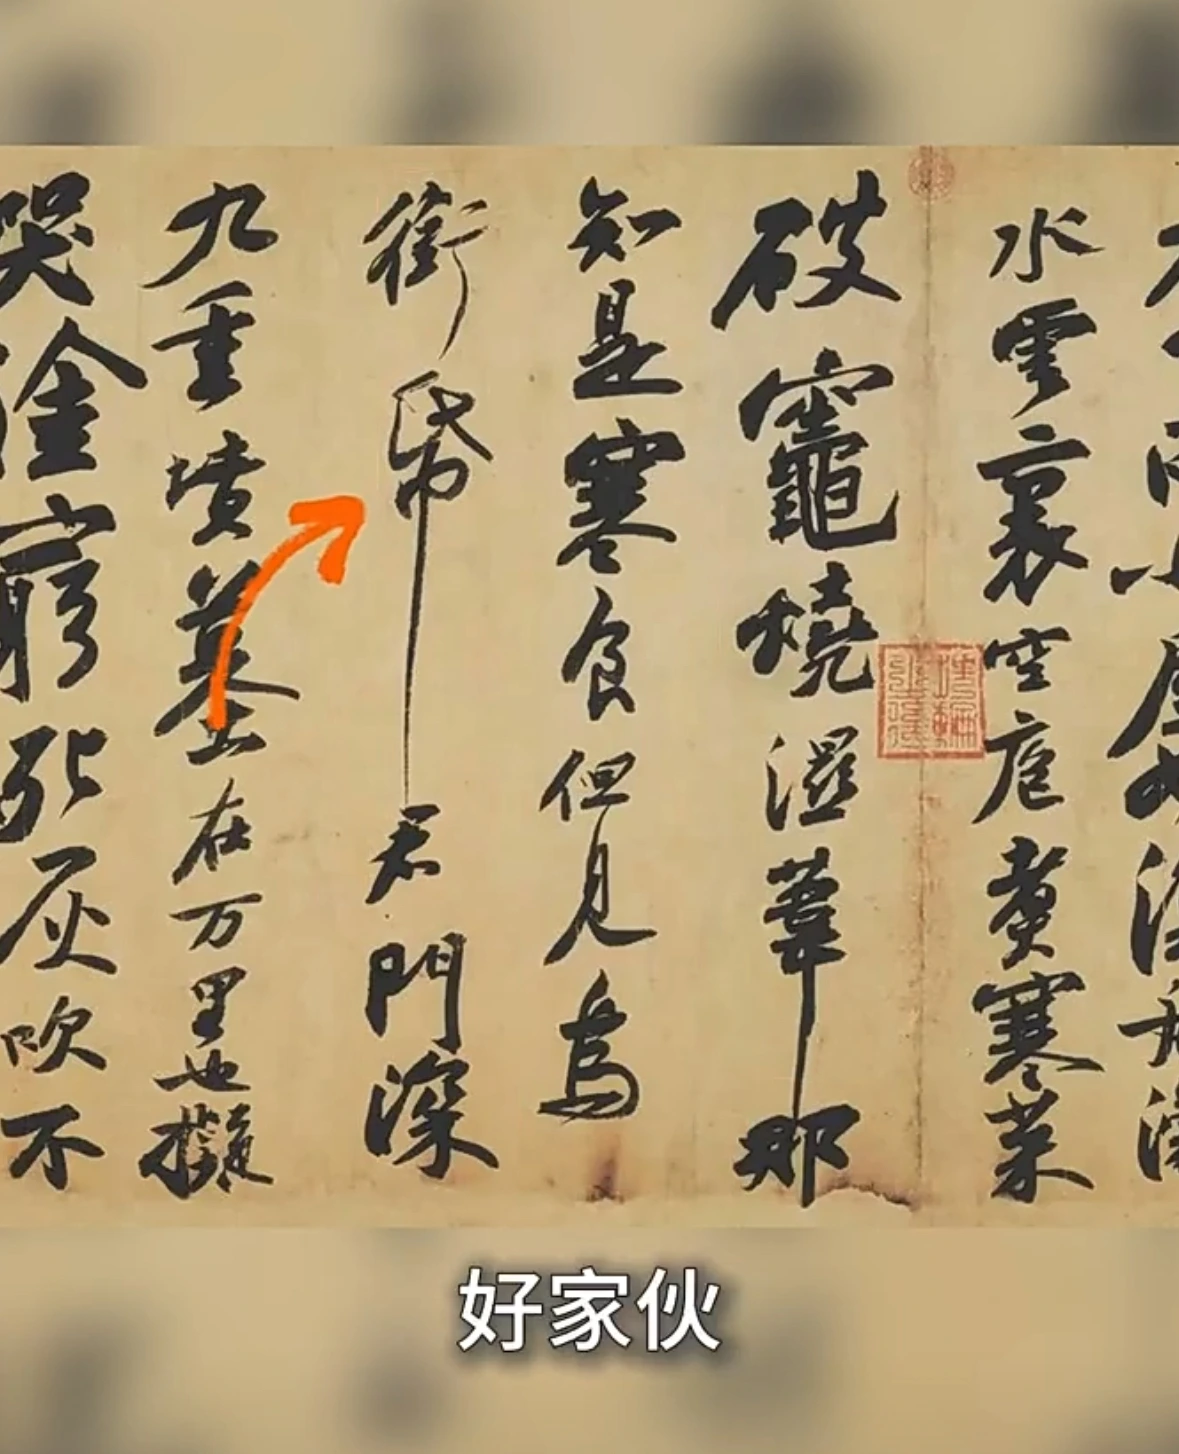 水雲裏空庖煮寒菜
破竈燒濕葦那
知是寒食但見烏
銜帋君門深
九重墳墓在万里也擬
哭塗窮死灰吹不
好家伙